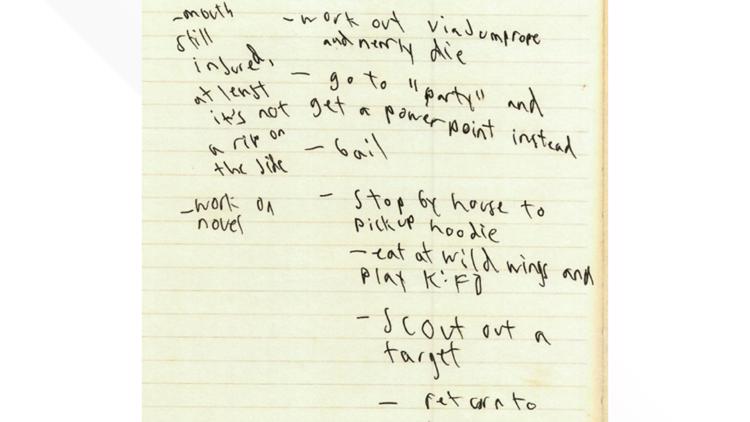 -mouth
still
injured,
at least
it's not
a rip on
the side
-work on
novel
-work out via Jumprope
and nearly die
- go to "party" and
get a powerpoint instead
- bail
- Stop by house to
pickup hoodie
-eat at wild wings and
play K:FD
- Scout out a
target
- return to